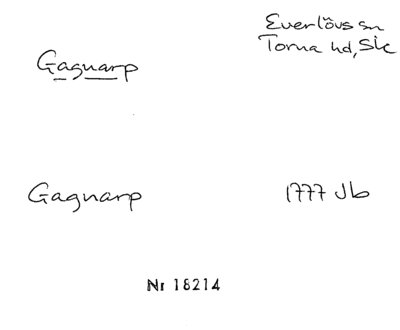 Everlövs sn
Torna hd, Sk
Gagnarp
Gagnarp
1777 Jb
Nr 18214